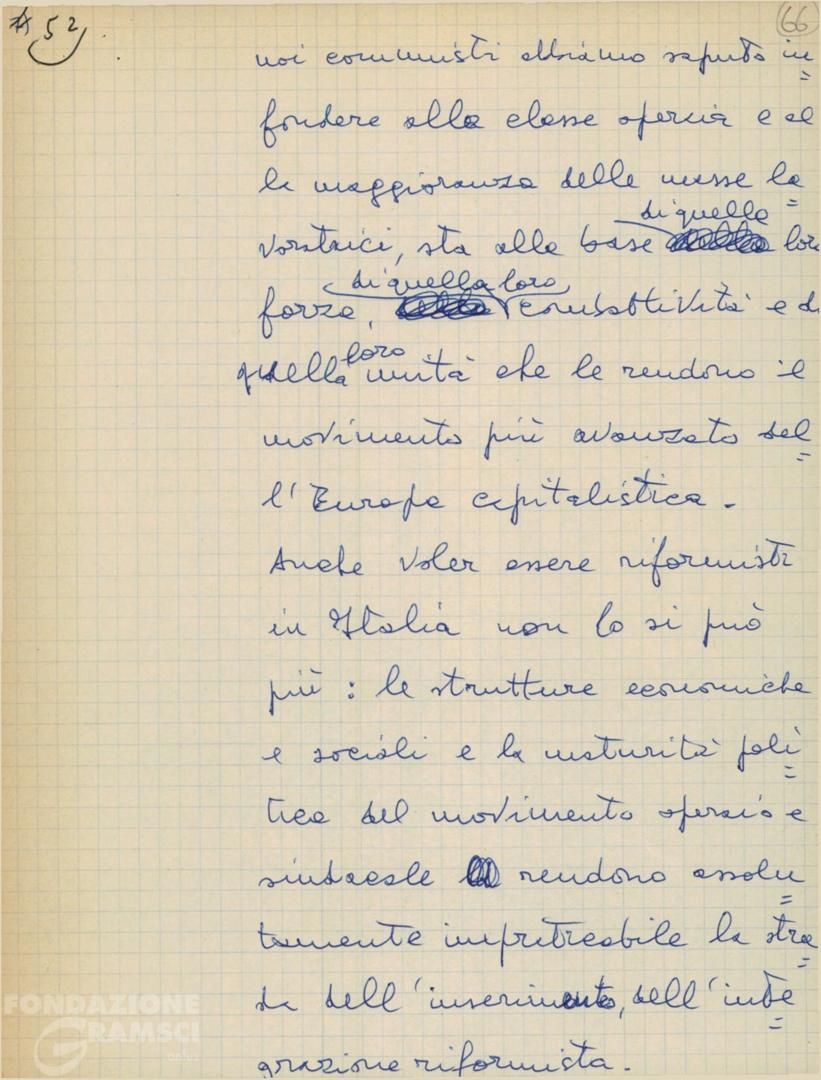 52
66
noi comunisti abbiamo saputo in=
fondere alla classe operaia e al
la maggioranza delle masse la=
di quella
voratrici, sta alla base loro
di quella loro
forza, combattività e di
quella loro unità che le rendono il
movimento più avanzato del=
l'Europa capitalistica.
Anche voler essere riformisti
in Italia non lo si può
più: le strutture economiche
e sociali e la maturità poli=
tica del movimento operaio e
sindacale rendono assolu=
tamente impraticabile la stra=
da dell'inserimento, dell'inte=
grazione riformista.
FONDAZIONE
GRAMSCI